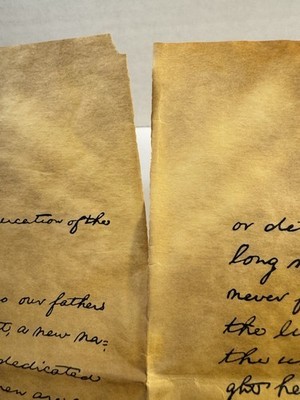 of the
o our fathers
t, a new na=
dedicated
or de
long r
never f
the li
the u
gho he